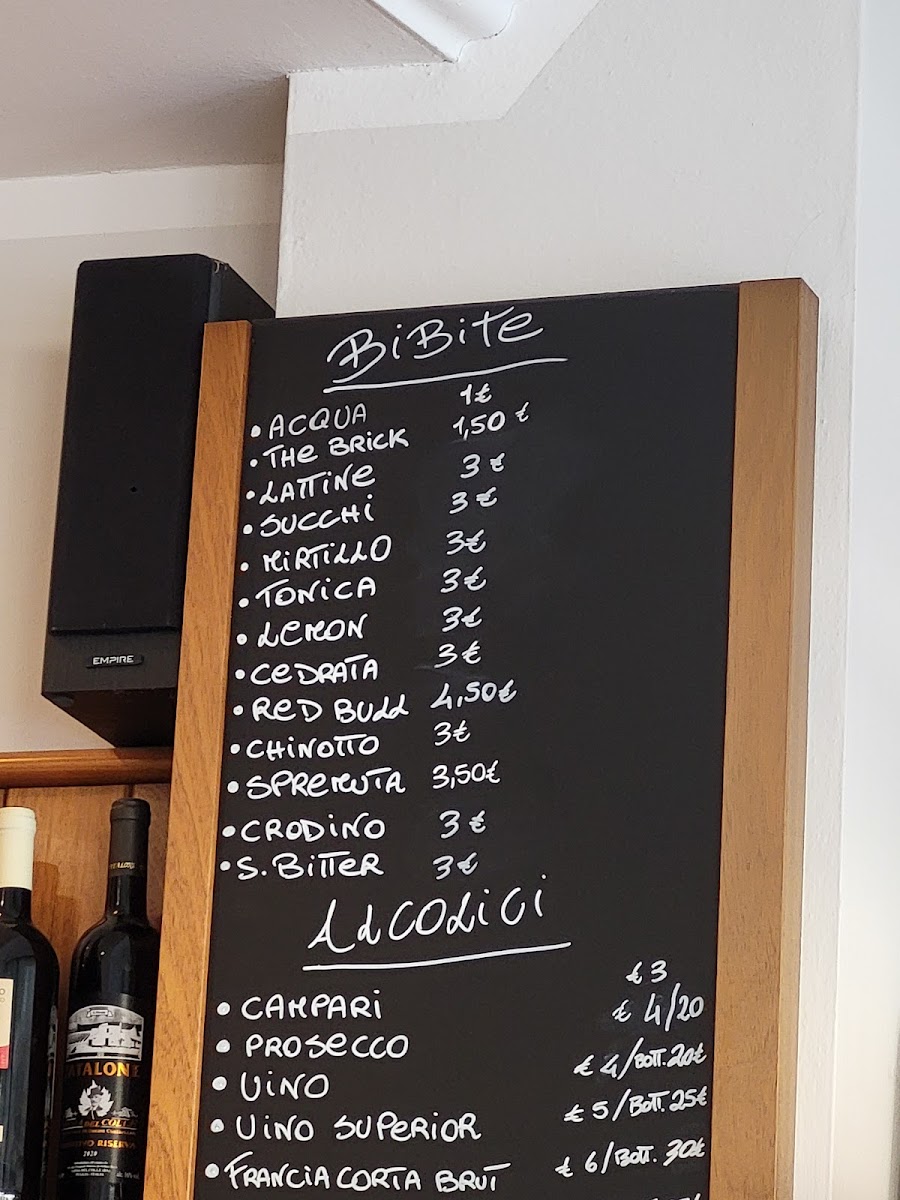 BiBite
• ACQUA 1€
• THE BRICK 1,50 €
• LATTINE 3 €
• SUCCHI 3 €
• MIRTILLO 3€
• TONICA 3€
• LEMON 3€
• CEDRATA 3€
• RED BULL 4,50€
• CHINOTTO 3€
• SPREMUTA 3,50€
• CRODINO 3€
• S. BITTER 3€
ALCOLICI
• CAMPARI € 3
• PROSECCO € 4/20
• VINO € 4/BOTT. 20€
• VINO SUPERIOR € 5/BOTT. 25€
• FRANCIACORTA BRUT € 6/BOTT. 30€
EMPIRE
2020